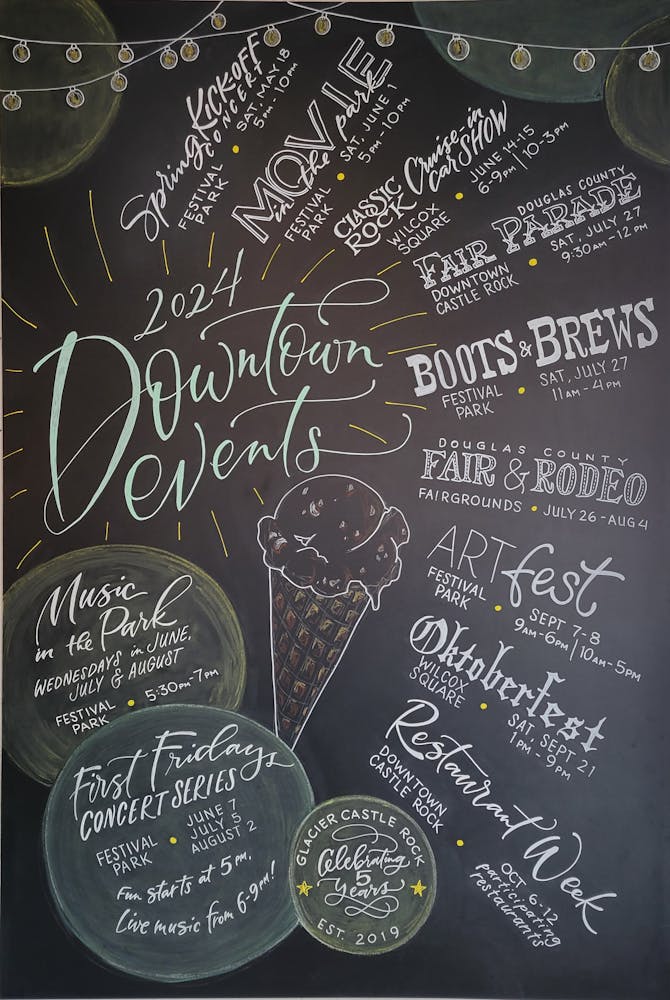 2024
Downtown
events
Spring KICK-OFF
CONCERT
FESTIVAL
PARK
SAT, MAY 18
5PM - 10PM
MOVIE
in the park
FESTIVAL
PARK
SAT, JUNE 1
5PM - 10PM
CLASSIC
ROCK
Cruise-in
car SHOW
WILCOX
SQUARE
JUNE 14-15
6-9PM | 10-3PM
DOUGLAS COUNTY
FAIR PARADE
DOWNTOWN
CASTLE ROCK
SAT, JULY 27
9:30AM - 12PM
BOOTS & BREWS
FESTIVAL
PARK
SAT, JULY 27
11AM - 4PM
DOUGLAS COUNTY
FAIR & RODEO
FAIRGROUNDS • JULY 26 - AUG 4
ART fest
FESTIVAL
PARK
SEPT 7-8
9AM-6PM | 10AM-5PM
Oktoberfest
WILCOX
SQUARE
SAT, SEPT 21
1PM - 9PM
Restaurant Week
DOWNTOWN
CASTLE ROCK
OCT 6-12
participating
restaurants
Music
in the Park
WEDNESDAYS in JUNE,
JULY & AUGUST
FESTIVAL
PARK
5:30PM-7PM
First Fridays
CONCERT SERIES
FESTIVAL
PARK
JUNE 7
JULY 5
AUGUST 2
Fun starts at 5PM,
Live music from 6-9PM!
GLACIER CASTLE ROCK
Celebrating
5
Years
EST. 2019